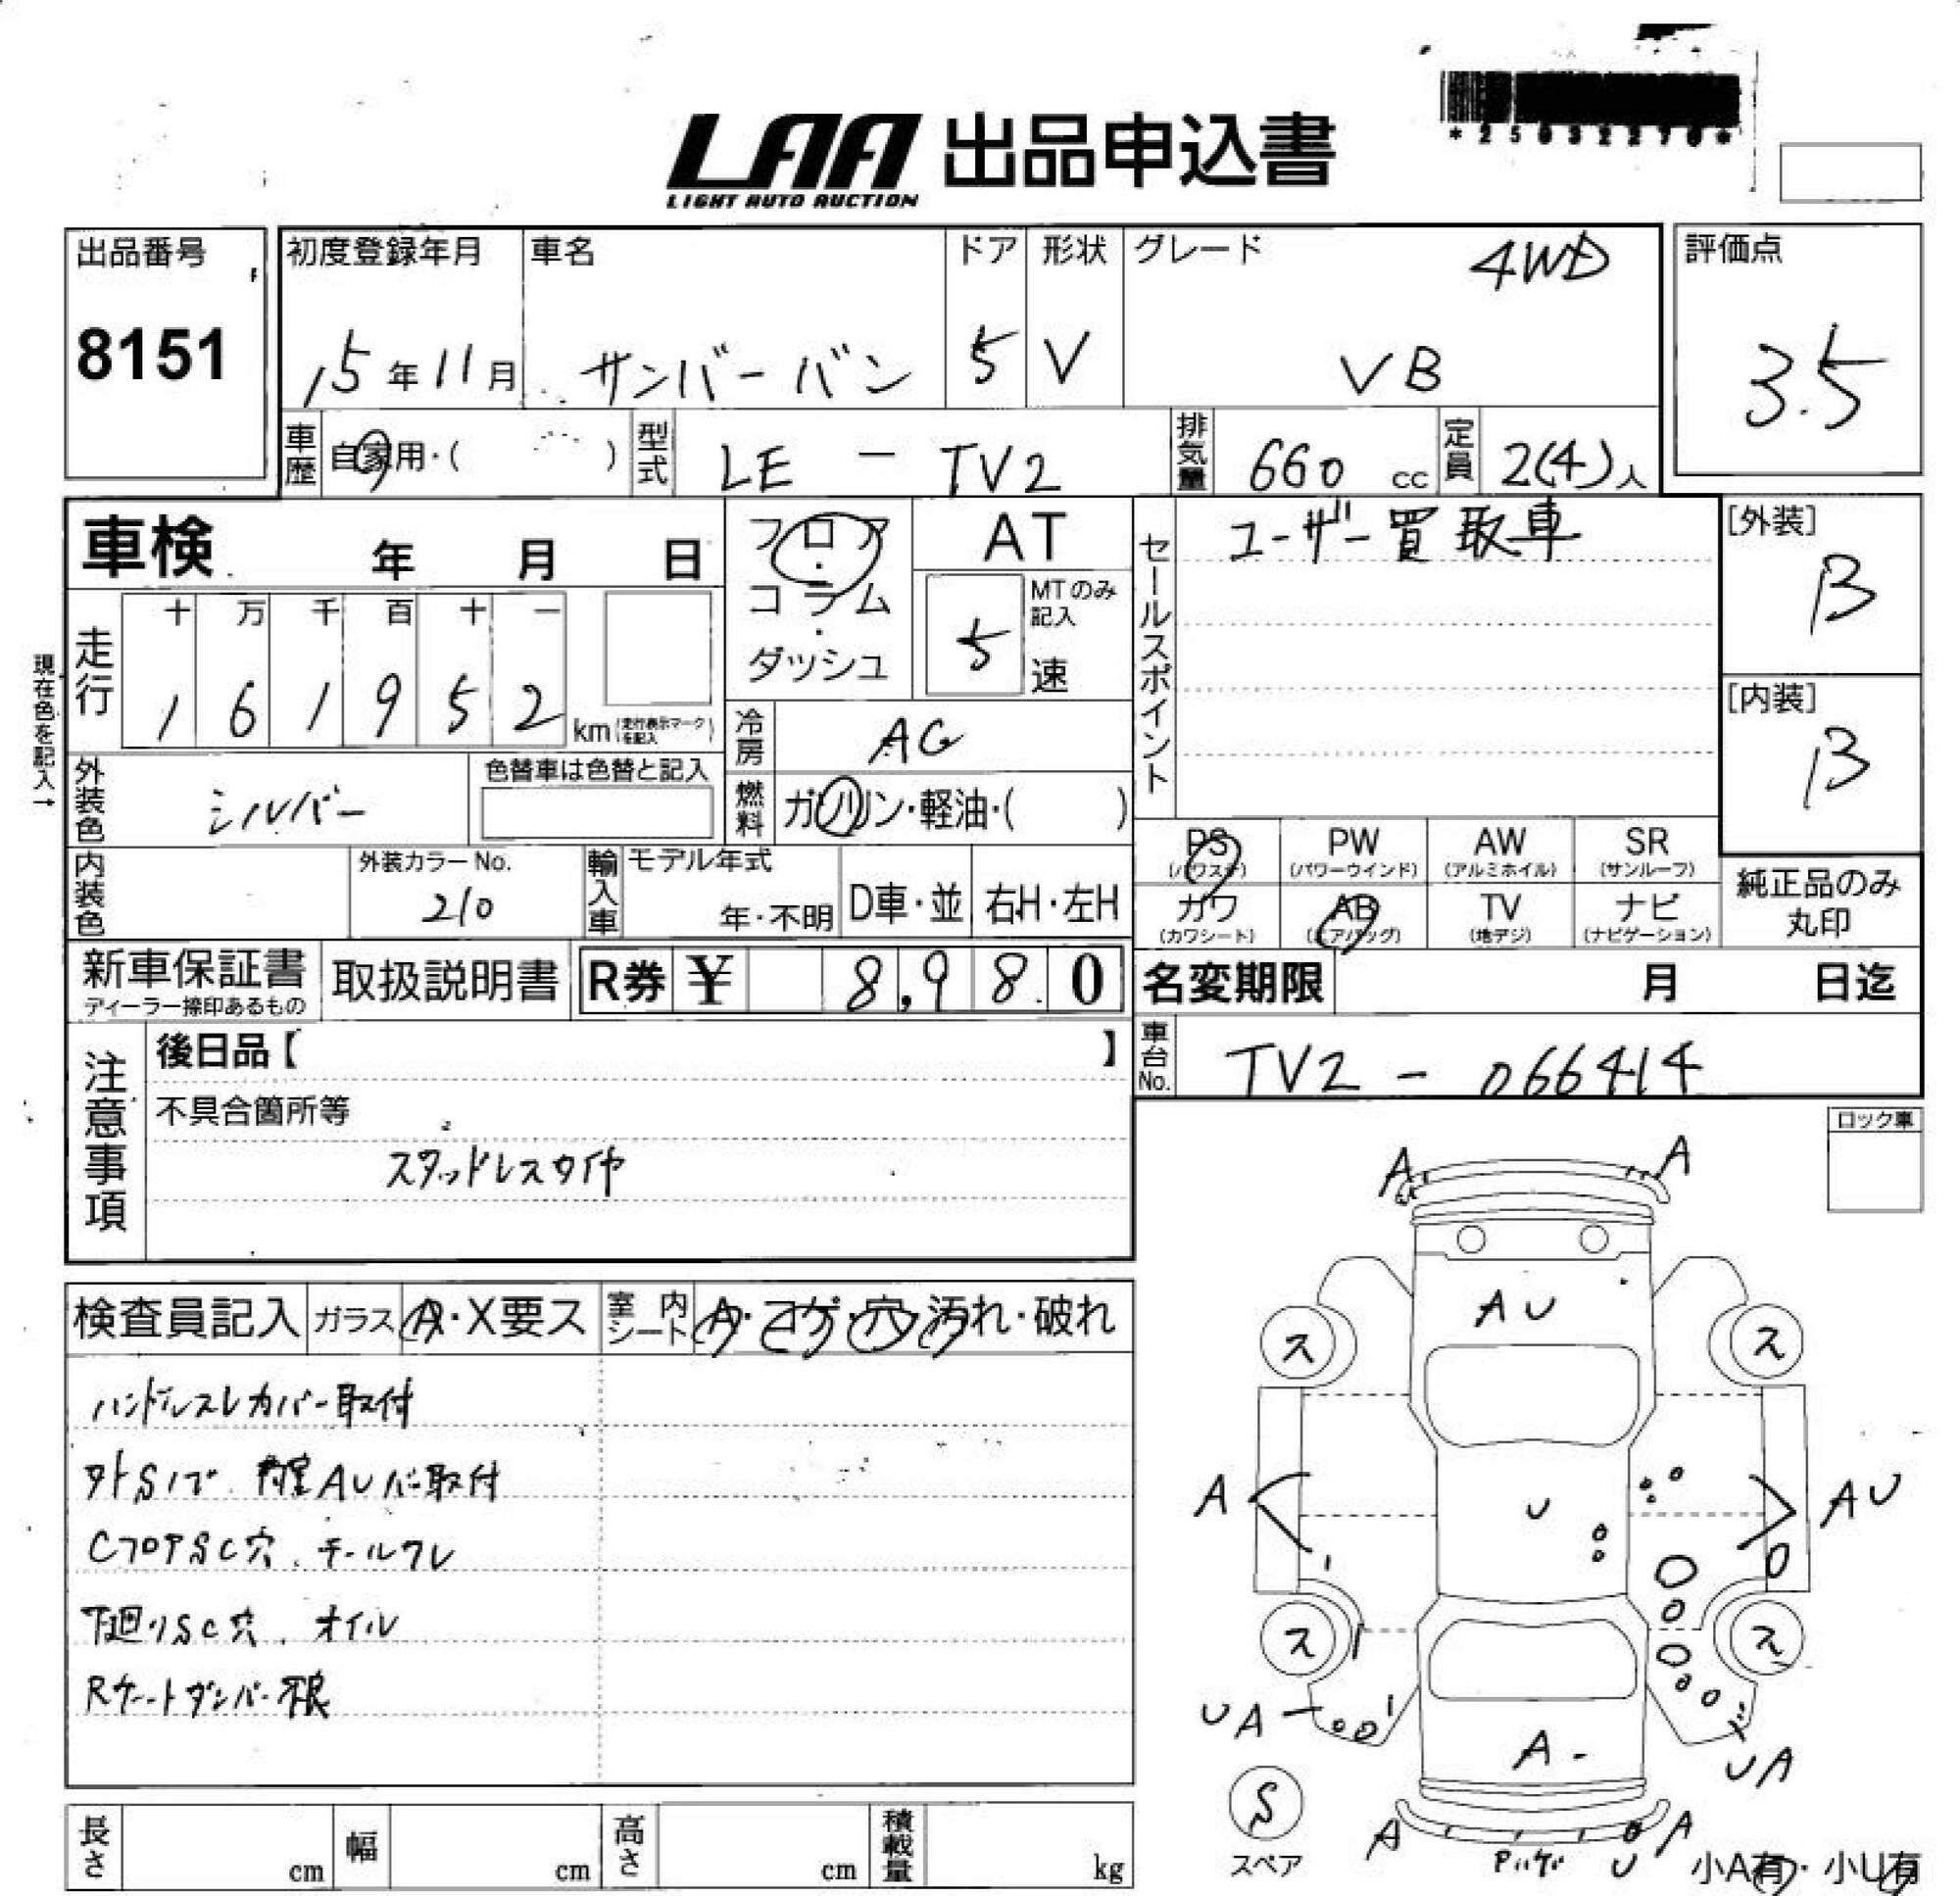 *25032270*
LAA 出品申込書
LIGHT AUTO AUCTION
出品番号
8151
初度登録年月
15年11月
車名
サンバーバン
ドア
5
形状
V
グレード
4WD
VB
評価点
3.5
車歴
自家用・( )
型式
LE - TV2
排気量
660 cc
定員
2(4)人
車検 年 月 日
フロア・コラム・ダッシュ
AT
MTのみ記入
5 速
セールスポイント
ユーザー買取車
[外装]
B
[内装]
B
現在色を記入→
走行
十 万 千 百 十 一
1 6 1 9 5 2
km (走行表示マークを記入)
冷房
AC
燃料
ガソリン・軽油・( )
外装色
シルバー
色替車は色替と記入
内装色
外装カラーNo.
210
輸入車
モデル年式
年・不明
D車・並
右H・左H
PS
(パワステ)
PW
(パワーウインド)
AW
(アルミホイル)
SR
(サンルーフ)
カワ
(カワシート)
AB
(エアバッグ)
TV
(地デジ)
ナビ
(ナビゲーション)
純正品のみ
丸印
新車保証書
ディーラー捺印あるもの
取扱説明書
R券 ¥ 8,980
名変期限 月 日迄
車台No.
TV2 - 066414
注意事項
後日品【 】
不具合箇所等
スタッドレスタイヤ
ロック車
検査員記入
ガラス A・X要ス
室内シート A・コゲ・穴・汚れ・破れ
ハンドルスレ カバー取付
外S
CフロアSC穴、モールワレ
下廻りSC穴、オイル
Rゲートダンパー不良
A A
AU
ス ス
A U AU
ス ス
UA A UA
S
スペア
A A
U
小A有・小U有
長さ cm
幅 cm
高さ cm
積載量 kg